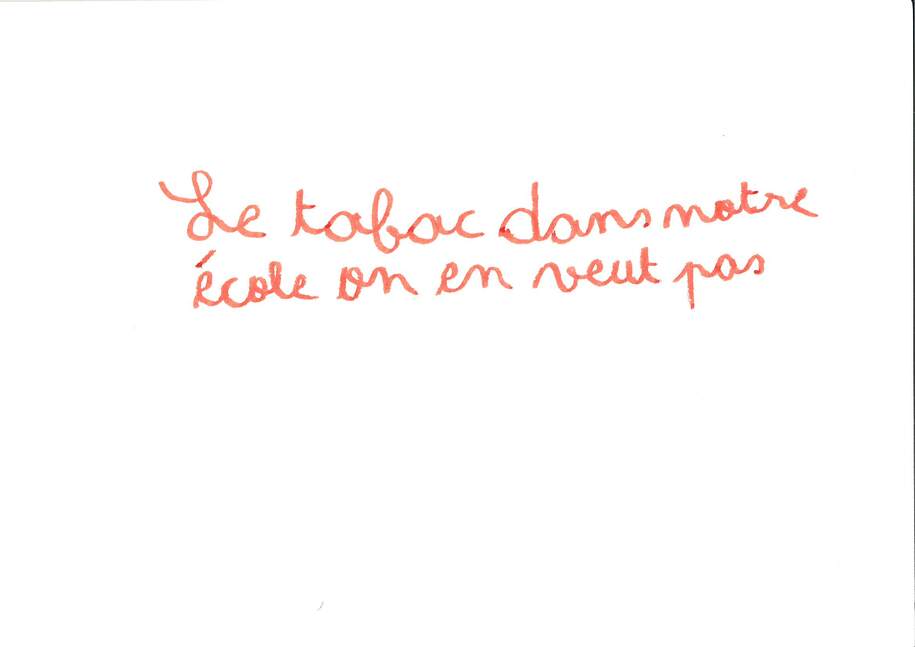 Le tabac dans notre
école on en veut pas